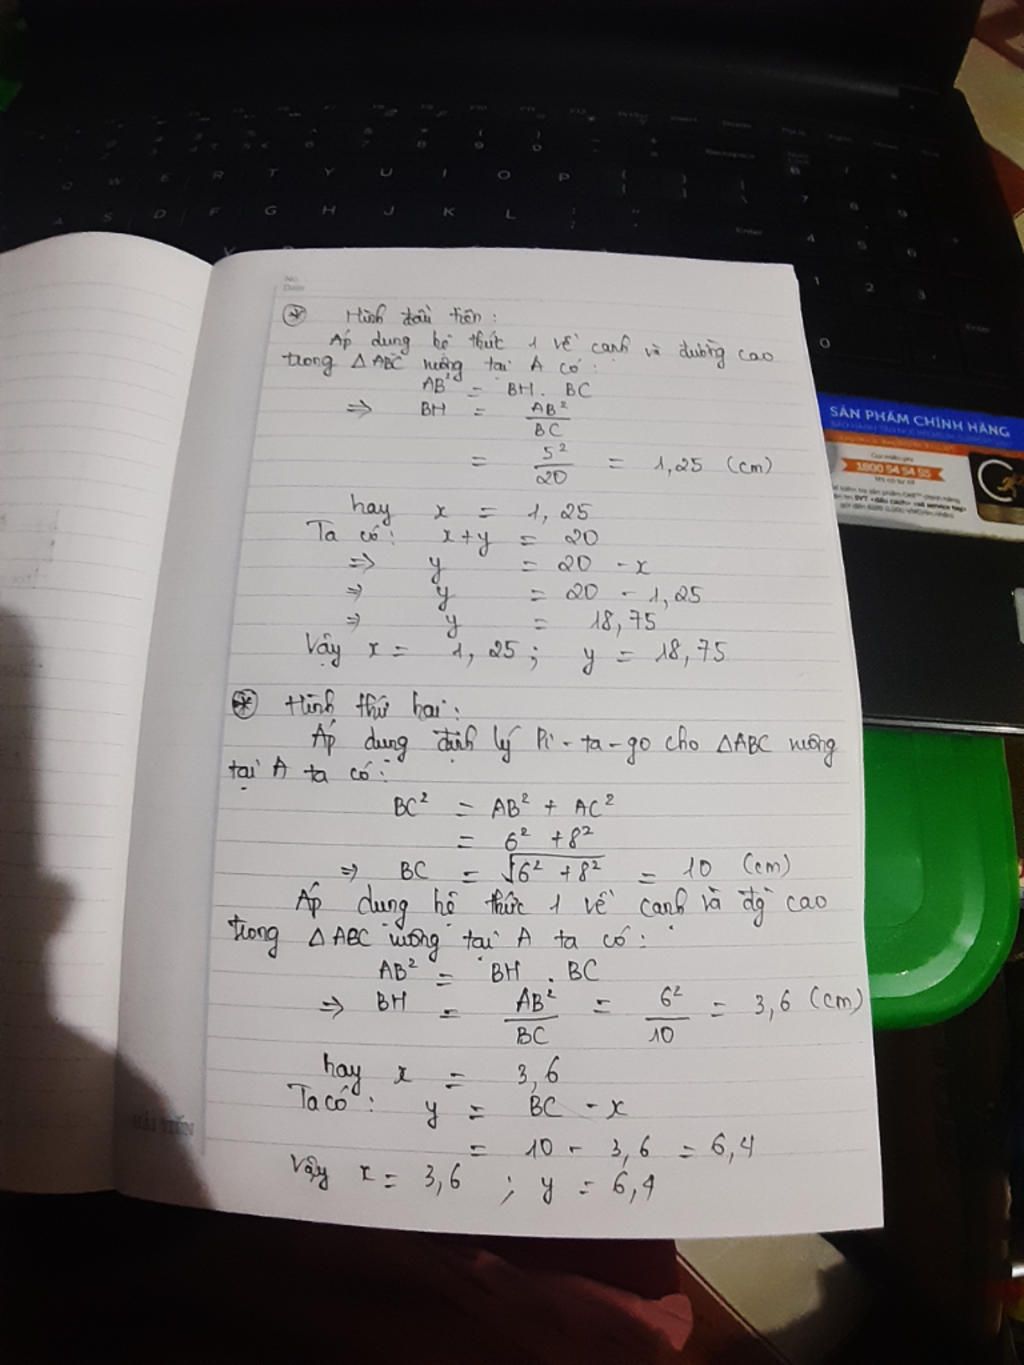 No.
Date
* Hình đầu tiên:
Áp dụng hệ thức 1 về cạnh và đường cao
trong △ABC vuông tại A có:
AB² = BH. BC
=> BH = AB²/BC
= 5²/20 = 1,25 (cm)
hay x = 1,25
Ta có: x+y = 20
=> y = 20 - x
=> y = 20 - 1,25
=> y = 18,75
Vậy x = 1,25; y = 18,75
* Hình thứ hai:
Áp dụng định lý Pi-ta-go cho △ABC vuông
tại A ta có:
BC² = AB² + AC²
= 6² + 8²
=> BC = √6² + 8² = 10 (cm)
Áp dụng hệ thức 1 về cạnh và đg cao
trong △ABC vuông tại A ta có:
AB² = BH . BC
=> BH = AB²/BC = 6²/10 = 3,6 (cm)
hay x = 3,6
Ta có: y = BC - x
= 10 - 3,6 = 6,4
Vậy x = 3,6 ; y = 6,4
HẢI TIẾN
SẢN PHẨM CHÍNH HÃNG
1800 54 54 55
Q W E R T Y U I O P
A S D F G H J K L
Enter